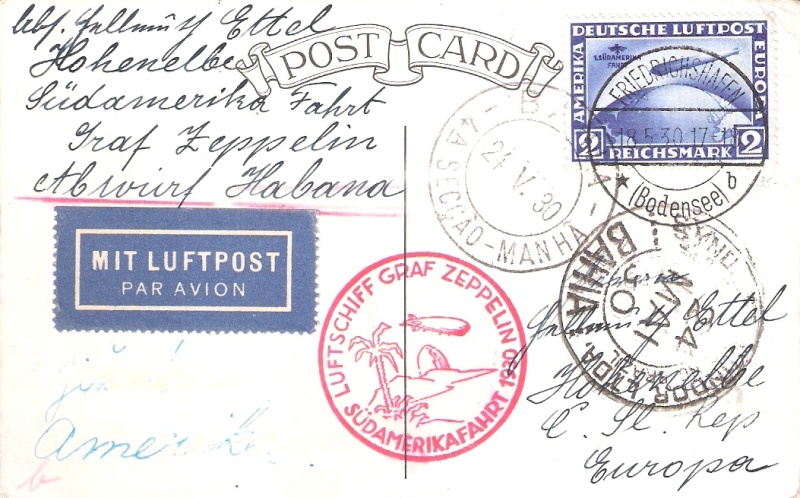 Abs. Hellmuth Ettel
Hohenelbe
Südamerika Fahrt
Graf Zeppelin
Abwurf Habana
POST CARD
DEUTSCHE LUFTPOST
AMERIKA
EUROPA
1. SÜDAMERIKA
FAHRT
2 REICHSMARK 2
FRIEDRICHSHAFEN
18.5.30.17-18
(Bodensee) b
BAHIA
24 V. 30
4A SECÇÃO-MANHÃ
MIT LUFTPOST
PAR AVION
LUFTSCHIFF GRAF ZEPPELIN
SÜDAMERIKAFAHRT 1930
BAHIA
24
MAI
30
Hellmuth Ettel
Hohenelbe
C. Sl. Rep
Europa
Amerika